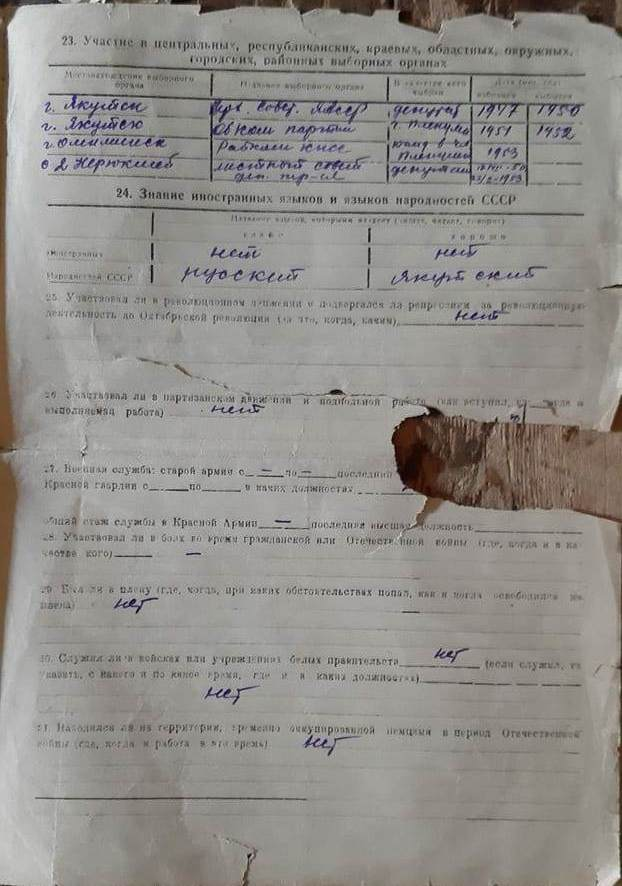 23. Участие в центральных, республиканских, краевых, областных, окружных,
городских, районных выборных органах
Местонахождение выборного органа | Название выборного органа | В качестве кого выбран | Дата
г. Якутск | Совет ЯАССР | депутат | 1947 | 1950
г. Якутск | Обком партии | г. Пленума | 1951 | 1952
г. Олекминск | Райком КПСС | Пленума | 1953
с. 2 Нерюктей | местный совет | депутат
деп. тр-ся
24. Знание иностранных языков и языков народностей СССР
слабо | хорошо
Иностранных | нет | нет
Народностей СССР | русский | якутский
25. Участвовал ли в революционном движении и подвергался ли репрессиям за революционную
деятельность до Октябрьской революции (за что, когда, каким) нет
26. Участвовал ли в партизанском движении и подпольной
выполняемая работа) нет
27. Военная служба: старой армии с — по — последний
Красной гвардии с по в каких должностях
Общий стаж службы в Красной Армии — последняя высшая должность
28. Участвовал ли в боях во время гражданской или Отечественной войны (где, когда и в ка-
честве кого) —
29. Был ли в плену (где, когда, при каких обстоятельствах попал, как и когда освободился из
плена) нет
30. Служил ли в войсках или учреждениях белых правительств нет (если служил, то
указать, с какого и по какое время, где и в каких должностях)
нет
31. Находился ли на территории, временно оккупированной немцами в период Отечественной
войны (где, когда и работа в это время) нет